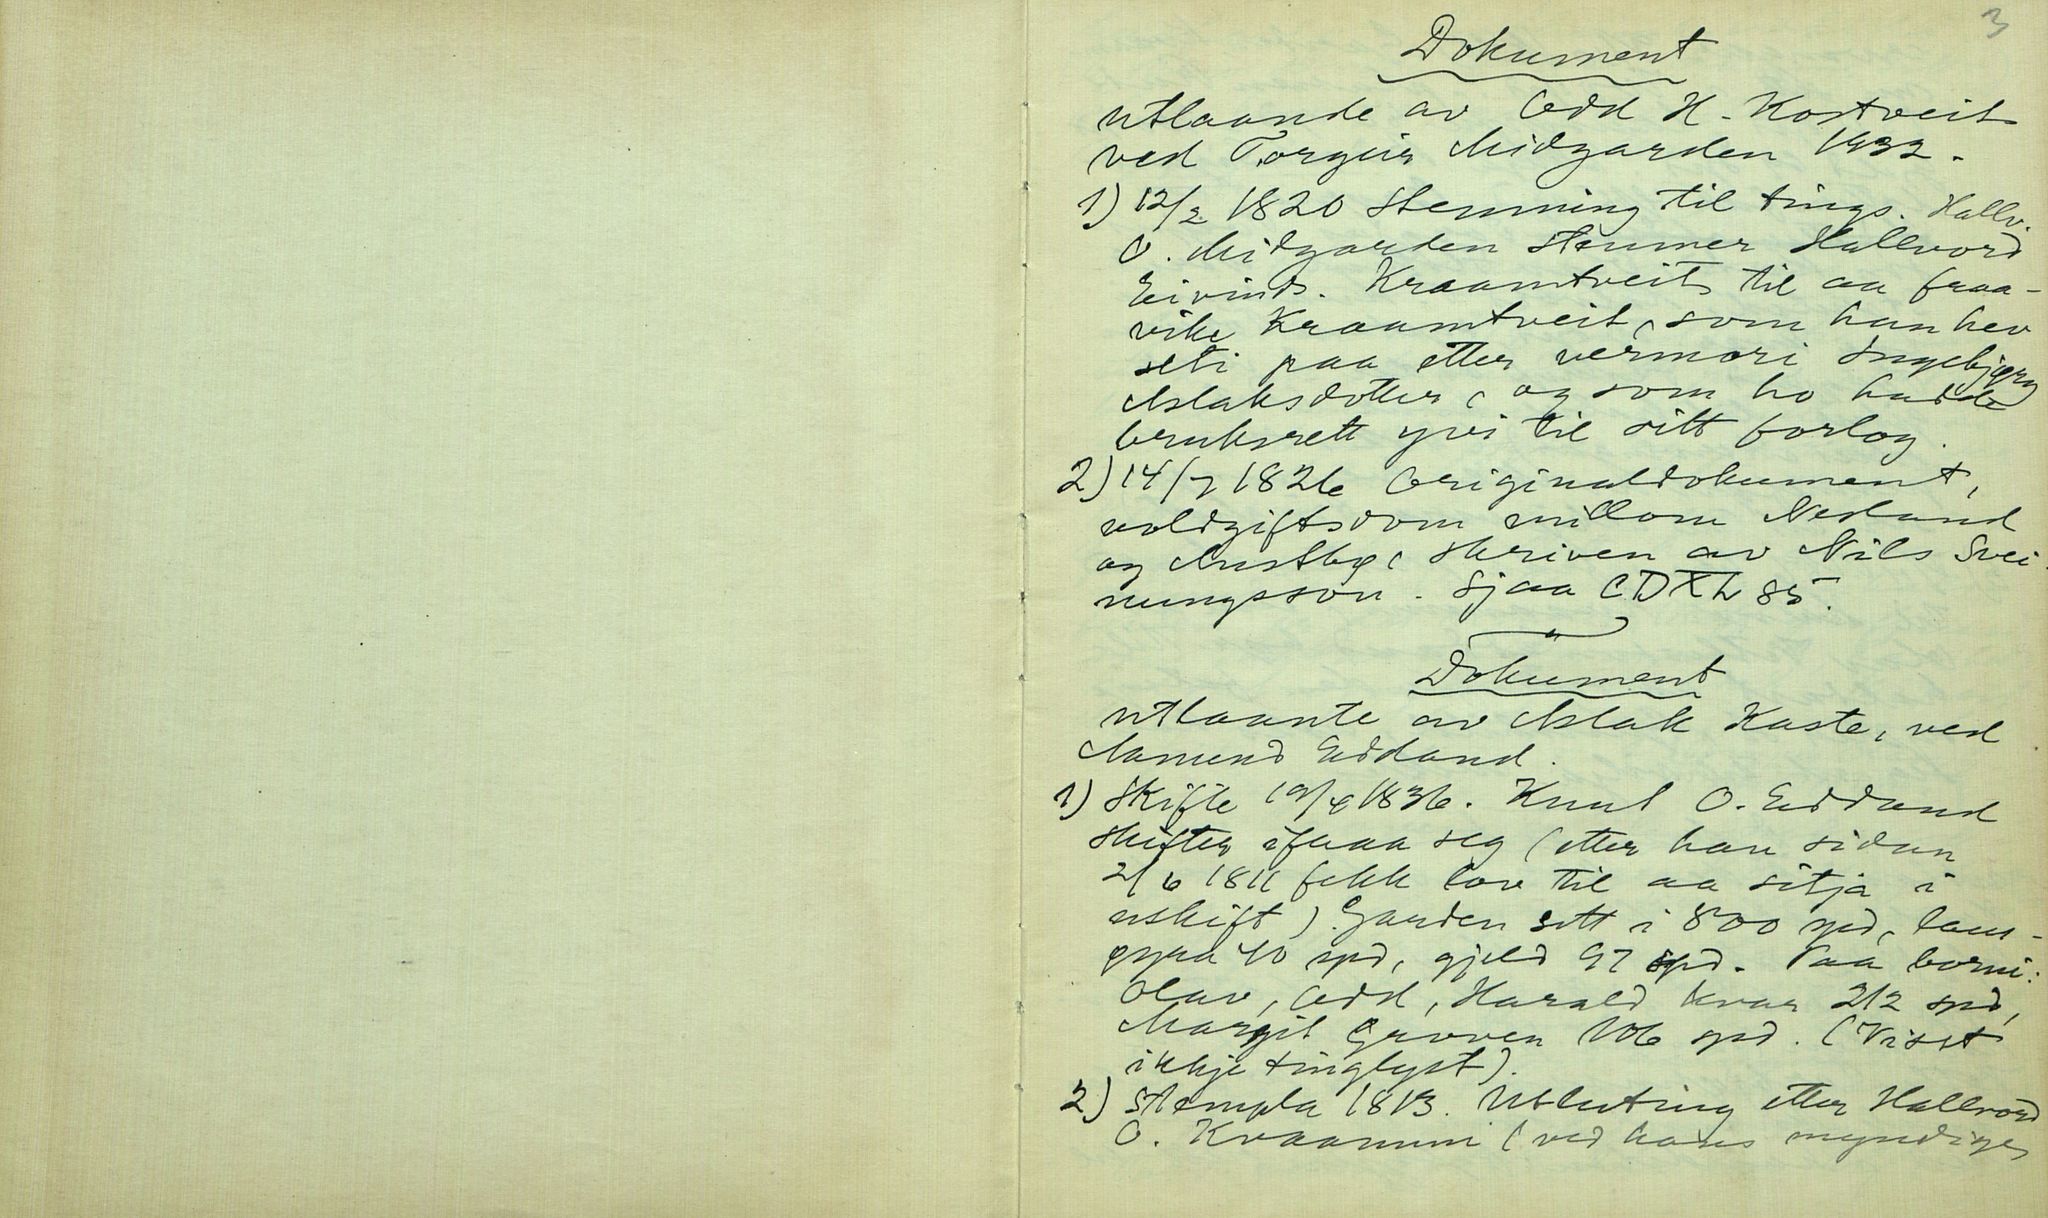 3
Dokument
utlaande av Odd H. Kostveit
ved Torgeir Midgarden 1932.
1) 12/2 1820 Stemning til tings. Hallv.
O. Midgarden stemner Hallvord
Eivinds. Kraamtveit til aa fraa-
vike Kraamtveit, som han hev
seti paa etter vermori Ingebjørg
Aslaksdotter, og som ho hadde
bruksrett yvi til sitt forlog.
2) 14/7 1826 Originaldokument,
voldgiftsdom millom Nesland
og Austbø, skriven av Nils Svei-
nungsson. Sjaa CDXL 85.
Dokument
utlaante av Aslak Kaste, ved
Aamund Edland.
1) Skifte 19/4 1836. Knut O. Eddand
skifter ifraa seg (etter han sidan
2/6 1811 fekk lov til aa sitja i
uskift). Garden sett i 800 spd, laus-
øyra 40 spd, gjeld 97 spd. Paa borni:
Olav, Odd, Harald kvar 212 spd,
Margit Groven 106 spd. (Visst
ikkje tinglyst).
2) Stempla 1813. Utluting etter Hallvord
O. Kvaammi (ved hans myndige